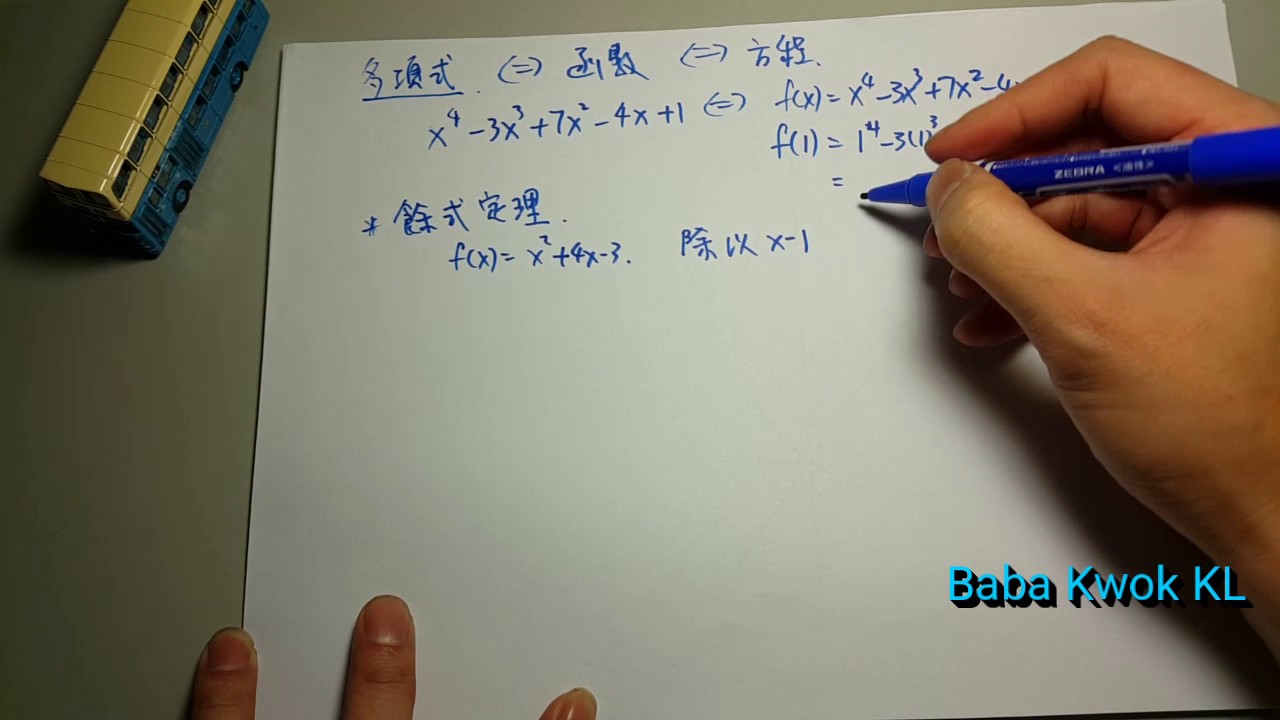 多項式. ⇔ 函數 ⇔ 方程.
x⁴-3x³+7x²-4x+1 ⇔ f(x)=x⁴-3x³+7x²-4
f(1)=1⁴-3(1)³
=
* 餘式定理.
f(x)=x²+4x-3. 除以 x-1
ZEBRA <油性>
Baba Kwok KL